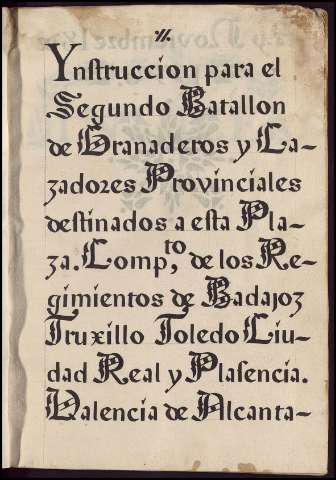 Ynstruccion para el
Segundo Batallon
de Granaderos y Ca-
zadores Provinciales
destinados a esta Pla-
za. Comp.to de los Re-
gimientos de Badajoz
Truxillo Toledo Ciu-
dad Real y Plasencia.
Valencia de Alcanta-